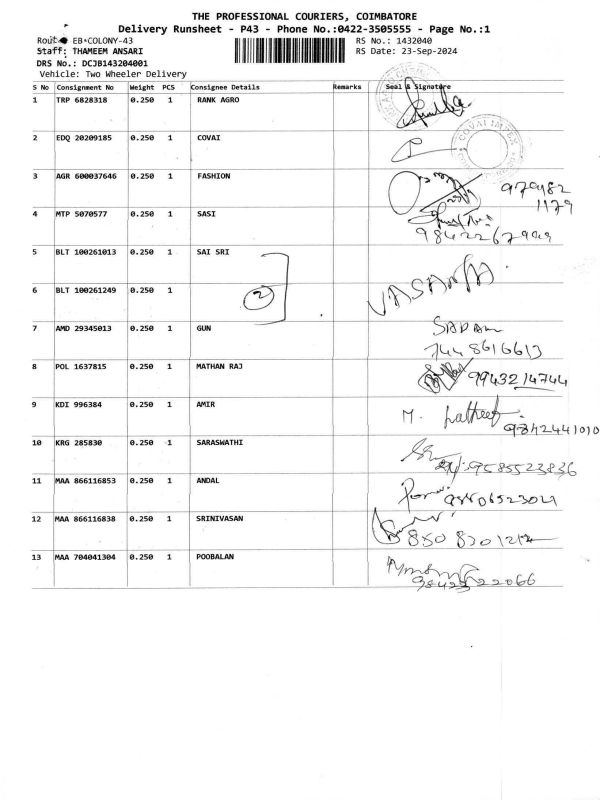 THE PROFESSIONAL COURIERS, COIMBATORE
Delivery Runsheet - P43 - Phone No.:0422-3505555 - Page No.:1
Route EB-COLONY-43 RS No.: 1432040
Staff: THAMEEM ANSARI RS Date: 23-Sep-2024
DRS No.: DCJB143204001
Vehicle: Two Wheeler Delivery
S No Consignment No Weight PCS Consignee Details Remarks Seal & Signature
1 TRP 6828318 0.250 1 RANK AGRO
2 EDQ 20209185 0.250 1 COVAI COVAI IMPEX
3 AGR 600037646 0.250 1 FASHION 979182
1179
4 MTP 5070577 0.250 1 SASI
5 BLT 100261013 0.250 1 SAI SRI
6 BLT 100261249 0.250 1 2 VASANTA
7 AMD 29345013 0.250 1 GUN
7448616613
8 POL 1637815 0.250 1 MATHAN RAJ 9943214744
9 KDI 996384 0.250 1 AMIR M. Latheef
9842441010
10 KRG 285830 0.250 1 SARASWATHI 9585523836
11 MAA 866116853 0.250 1 ANDAL
12 MAA 866116838 0.250 1 SRINIVASAN
13 MAA 704041304 0.250 1 POOBALAN